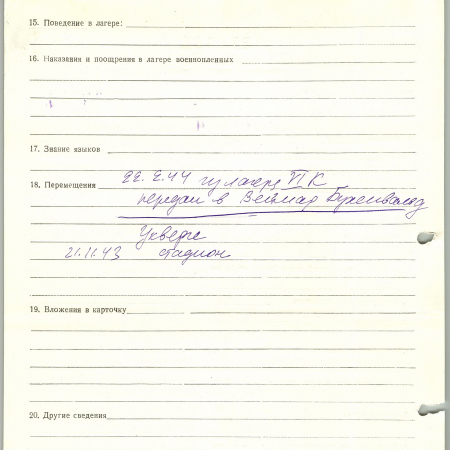 15. Поведение в лагере:
16. Наказания и поощрение в лагере военнопленных
17. Знание языков
18. Перемещения 22. 2. 44 из лагеря VI K
передан в Веймар Бухенвальд
21.11.43 стадион
19. Вложения в карточку
20. Другие сведения